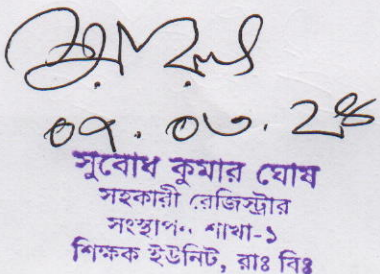 ০৭.০৩.২৪
সুবোধ কুমার ঘোষ
সহকারী রেজিস্ট্রার
সংস্থাপন শাখা-১
শিক্ষক ইউনিট, রাঃ বিঃ